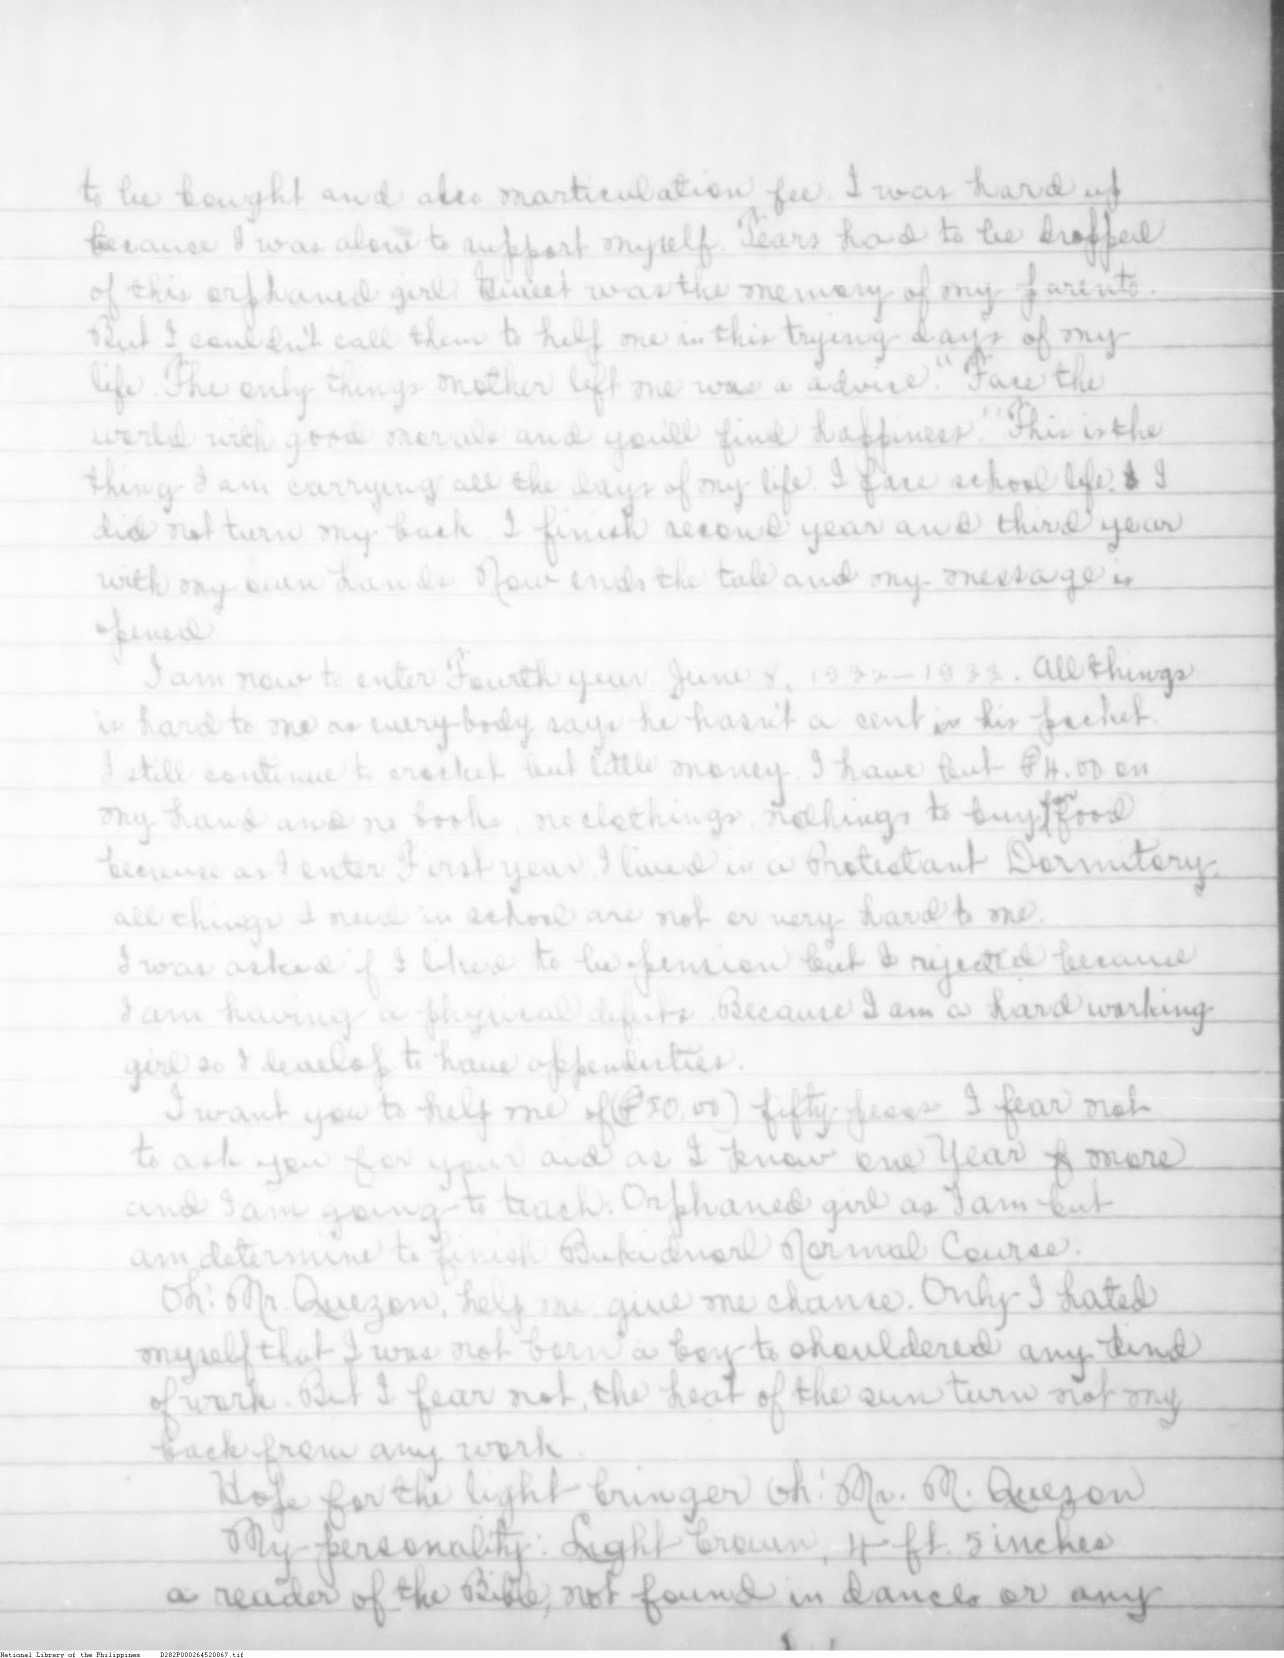 to be bought and also marticulation fee. I was hard up
because I was alone to support myself. Tears had to be dropped
of this orphaned girl. Sweet was the memory of my parents.
But I couldn't call them to help me in this trying days of my
life. The only things mother left me was a advice. "Face the
world with good morals and you'll find happiness." This is the
thing I am carrying all the days of my life. I face school life. I
did not turn my back. I finish second year and third year
with my own hands. Now ends the tale and my message is
opened
I am now to enter Fourth year June 8, 1932-1933. All things
is hard to me as everybody says he hasn't a cent in his pocket.
I still continue to crocket but little money. I have but ₱4.00 on
my hand and no books, no clothings, nothings to buy for food
because as I enter First year I lived in a Protestant Dormitory.
all things I need in school are not or very hard to me.
I was asked if I liked to be pension but I rejected because
I am having a physical defects. Because I am a hard working
girl so I develop to have appendisties.
I want you to help me of (₱50.00) fifty pesos I fear not
to ask you for your aid as I know one Year & more
and I am going to teach. Orphaned girl as I am but
am determine to finish Bukidnon Normal Course.
Oh! Mr. Quezon, help me give me chance. Only I hated
myself that I was not born a boy to shouldered any kind
of work. But I fear not, the heat of the sun turn not my
back from any work.
Hope for the light bringer Oh! Mr. M. Quezon
My personality: Light brown, 4 ft. 5 inches
a reader of the Bible, not found in dances or any
National Library of the Philippines D282P000264520067.tif